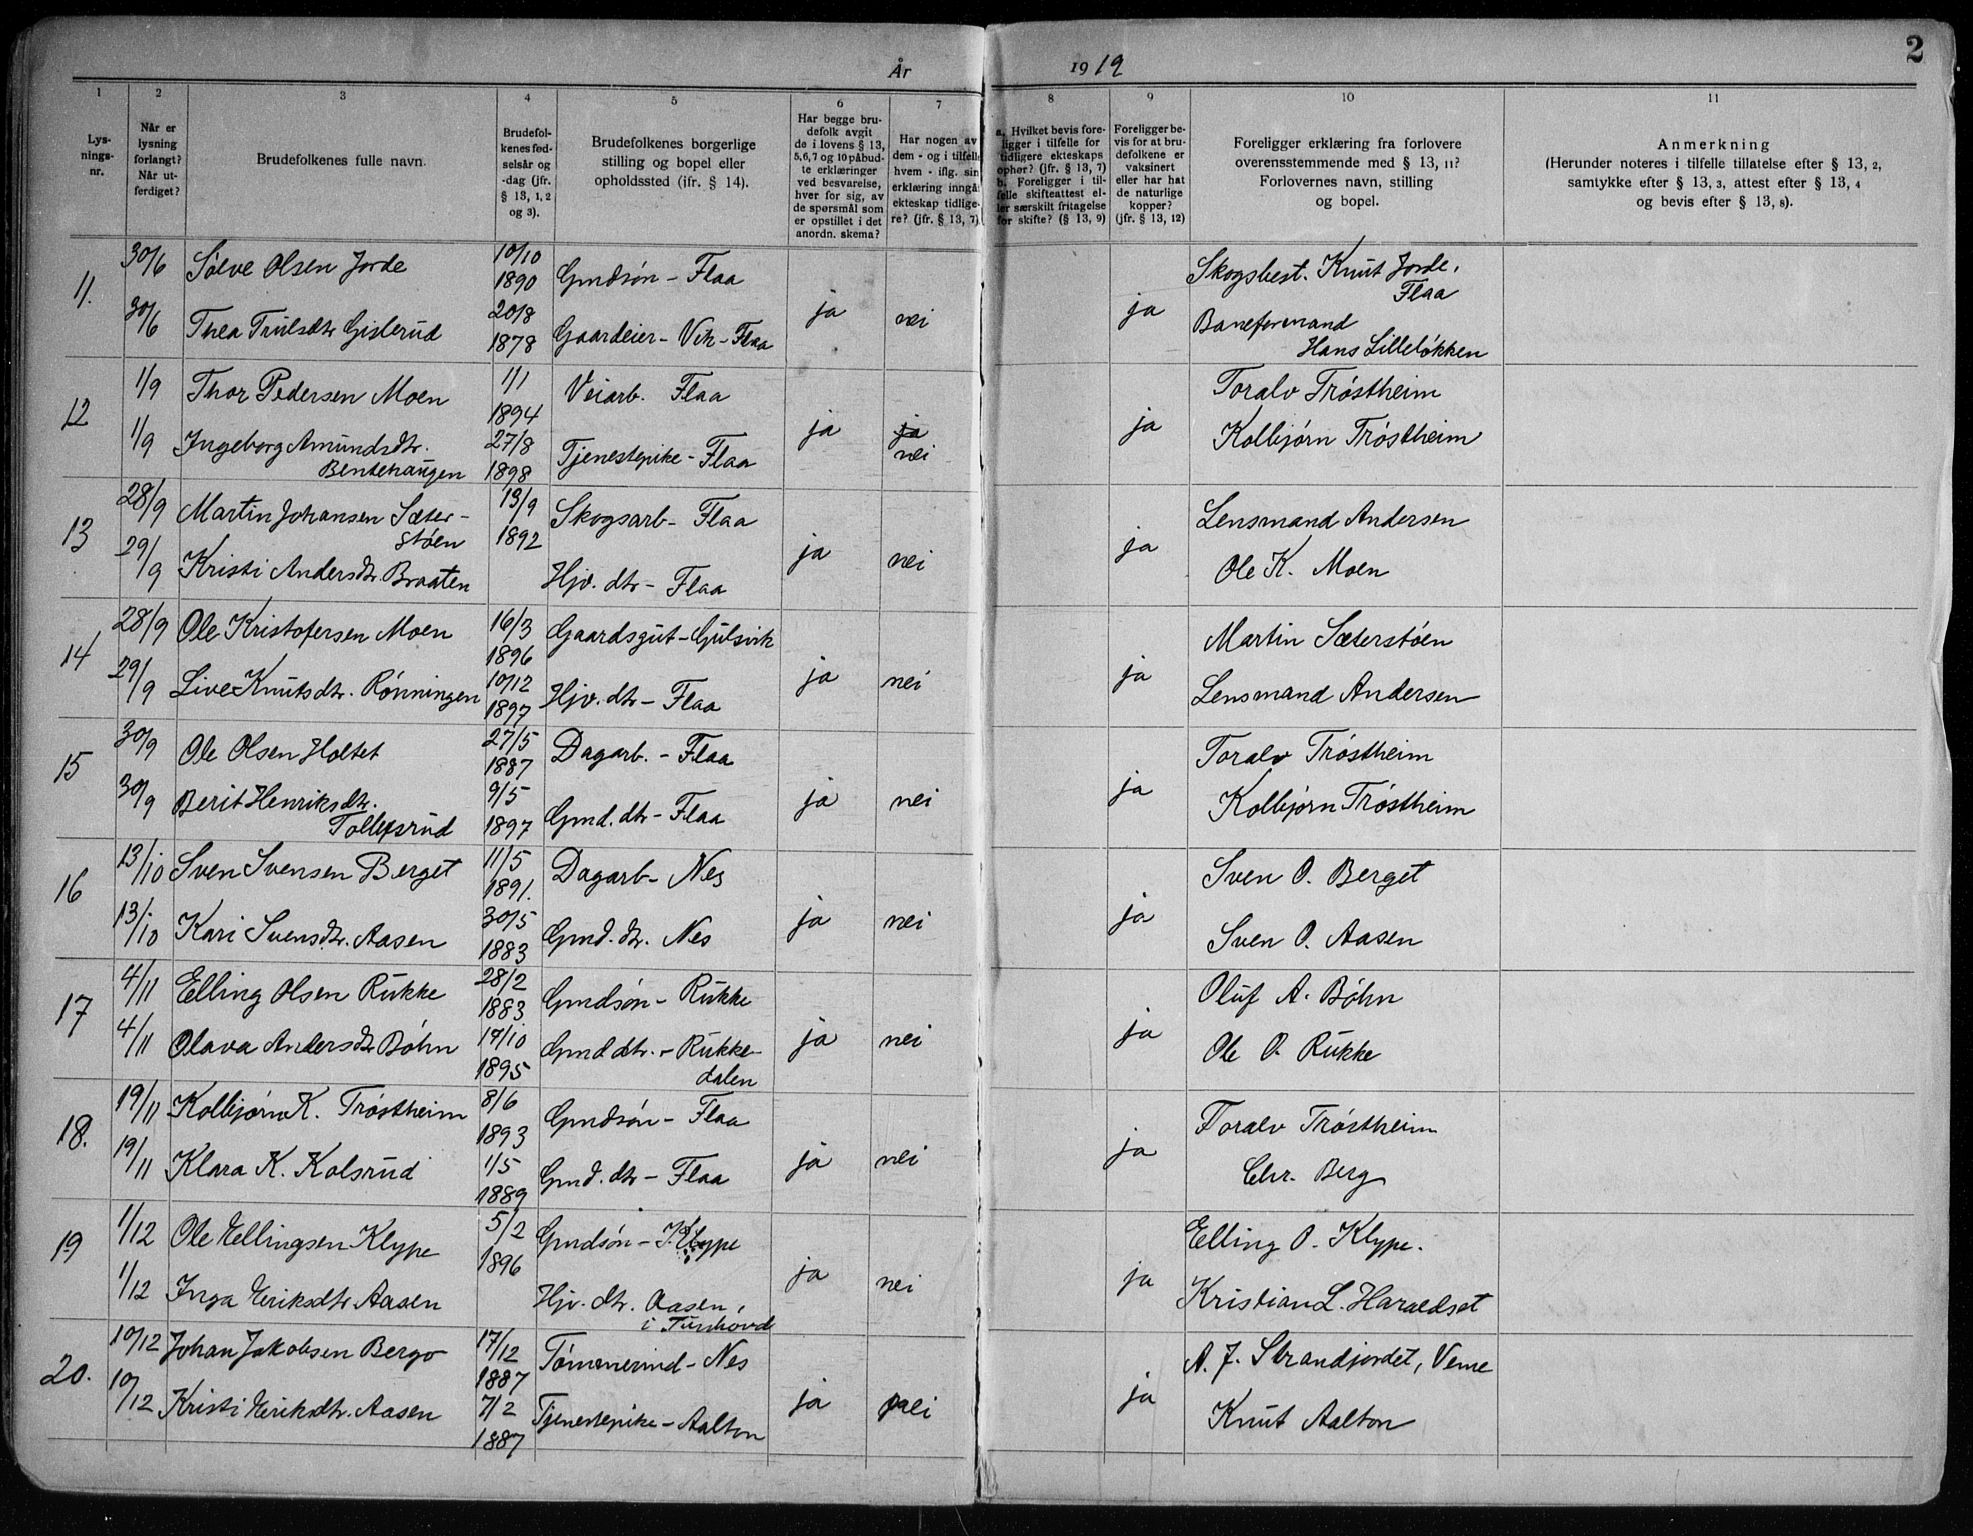 År 1919
2
1 2 3 4 5 6 7 8 9 10 11
Lys-
nings-
nr.
Når er
lysning
forlangt?
Når ut-
ferdiget?
Brudefolkenes fulle navn.
Brudefol-
kenes fød-
selsår og
-dag (jfr.
§ 13, 1, 2
og 3).
Brudefolkenes borgerlige
stilling og bopel eller
opholdssted (jfr. § 14).
Har begge bru-
defolk avgit
de i lovens § 13,
5, 6, 7 og 10 påbud-
te erklæringer
ved besvarelse,
hver for sig, av
de spørsmål som
er opstillet i det
anordn. skema?
Har nogen av
dem - og i tilfelle
hvem - iflg. sin
erklæring inngåt
ekteskap tidlige-
re? (jfr. § 13, 7)
a. Hvilket bevis fore-
ligger i tilfelle for
tidligere ekteskaps
ophør? (jfr. § 13, 7)
b. Foreligger i til-
felle skifteattest el-
ler særskilt fritagelse
for skifte? (§ 13, 9)
Foreligger be-
vis for at bru-
defolkene er
vaksinert
eller har hat
de naturlige
kopper?
(jfr. § 13, 12)
Foreligger erklæring fra forlovere
overensstemmende med § 13, 11?
Forlovernes navn, stilling
og bopel.
Anmerkning
(Herunder noteres i tilfelle tillatelse efter § 13, 2,
samtykke efter § 13, 3, attest efter § 13, 4
og bevis efter § 13, 8).
11. 30/6 Sølve Olsen Jorde 10/10 1890 Gmdsøn - Flaa ja nei ja Skogsbest. Knut Jorde,
Flaa
30/6 Thea Trulsdtr Gislerud 20/8 1878 Gaardeier - Vik - Flaa Baneformand
Hans Lilleløkken
12 1/9 Thor Pedersen Moen 1/1 1894 Veiarb. Flaa ja ja nei ja Toralv Trøstheim
1/9 Ingeborg Amundsdtr.
Bentehaugen 27/8 1898 Tjenestepike - Flaa Kolbjørn Trøstheim
13 28/9 Martin Johansen Sæter-
støen 13/9 1892 Skogsarb - Flaa ja nei ja Lensmand Andersen
29/9 Kristi Andersdtr. Braaten Hjv. dtr - Flaa Ole K. Moen
14 28/9 Ole Kristofersen Moen 16/3 1896 Gaardsgut - Gulsvik ja nei ja Martin Sæterstøen
29/9 Live Knutsdtr. Rønningen 10/12 1897 Hjv. dtr - Flaa Lensmand Andersen
15 30/9 Ole Olsen Holtet 27/5 1887 Dagarb. - Flaa ja nei ja Toralv Trøstheim
30/9 Berit Henriksdtr.
Tollefsrud 9/5 1897 Gmd. dtr - Flaa Kolbjørn Trøstheim
16 13/10 Sven Svensen Berget 11/5 1891. Dagarb - Nes ja nei ja Sven O. Berget
13/10 Kari Svensdtr. Aasen 30/5 1883 Gmd. dtr. Nes Sven O. Aasen
17 4/11 Elling Olsen Rukke 28/2 1883 Gmdsøn - Rukke ja nei ja Oluf A. Bøhn
4/11 Olava Andersdtr Bøhn 17/10 1895 Gmd dtr. - Rukke-
dalen Ole O. Rukke
18. 19/11 Kolbjørn K. Trøstheim 8/6 1893 Gmdsøn - Flaa ja nei ja Toralv Trøstheim
19/11 Klara K. Kolsrud 1/5 1889 Gmd. dtr - Flaa Chr. Berg
19 1/12 Ole Ellingsen Klype 5/2 1896 Gmdsøn - Klype ja nei ja Elling O. Klype.
1/12 Inga Eriksdtr Aasen Hjv. dtr. Aasen,
i Tunhovd Kristian L. Haraldset
20. 10/12 Johan Jakobsen Bergo 17/12 1887 Tømmermd - Nes ja nei ja A. J. Strandjordet, Veme
10/12 Kristi Eriksdtr. Aasen 7/2 1887 Tjenestepike - Aalton Knut Aalton